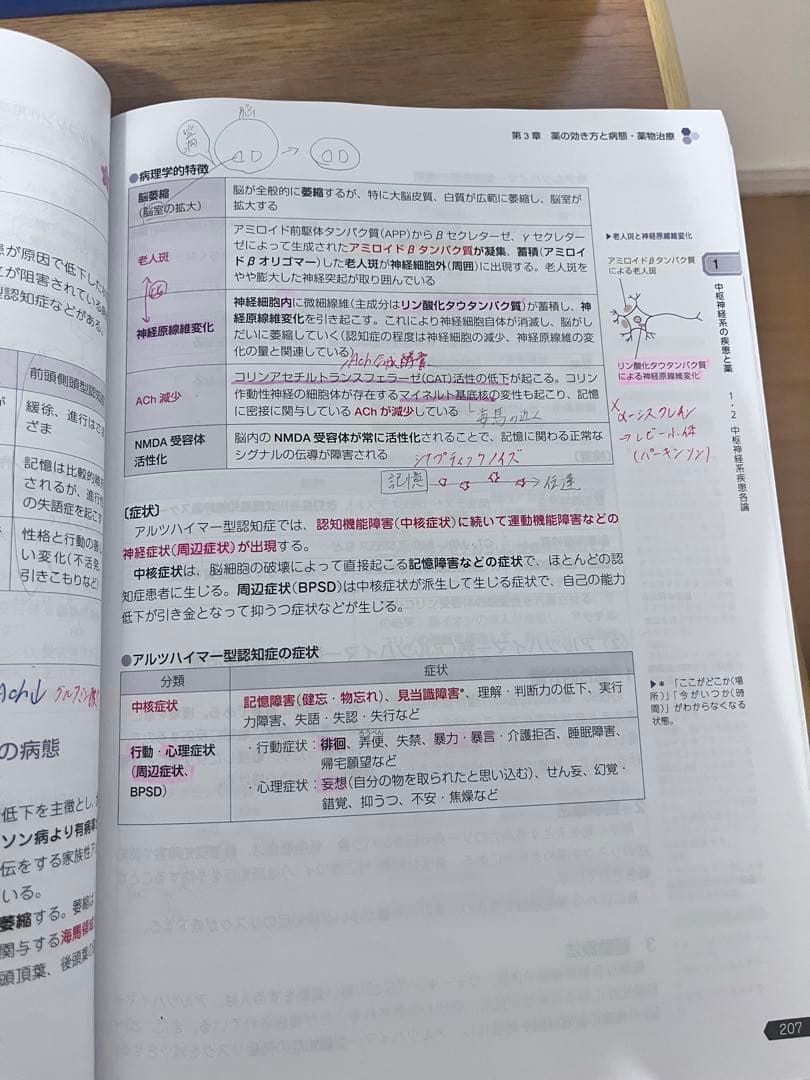 第3章 薬の効き方と病態・薬物治療
脳
空洞
●病理学的特徴
脳萎縮
(脳室の拡大)
脳が全般的に萎縮するが、特に大脳皮質、白質が広範に萎縮し、脳室が
拡大する
老人斑
アミロイド前駆体タンパク質(APP)からβセクレターゼ、γセクレター
ゼによって生成されたアミロイドβタンパク質が凝集、蓄積(アミロイ
ドβオリゴマー)した老人斑が神経細胞外(周囲)に出現する。老人斑を
やや膨大した神経突起が取り囲んでいる
神経原線維変化
神経細胞内に微細線維(主成分はリン酸化タウタンパク質)が蓄積し、神
経原線維変化を引き起こす。これにより神経細胞自体が消滅し、脳がし
だいに萎縮していく(認知症の程度は神経細胞の減少、神経原線維の変
化の量と関連している)
Ach合成酵素
ACh 減少
コリンアセチルトランスフェラーゼ(CAT)活性の低下が起こる。コリン
作動性神経の細胞体が存在するマイネルト基底核の変性も起こり、記憶
に密接に関与している ACh が減少している
海馬の近く
NMDA 受容体
活性化
脳内の NMDA 受容体が常に活性化されることで、記憶に関わる正常な
シグナルの伝導が障害される
シナプティックノイズ
記憶
伝達
▶老人斑と神経原線維変化
アミロイドβタンパク質
による老人斑
リン酸化タウタンパク質
による神経原線維変化
α-シヌクレイン
→レビー小体
(パーキンソン)
1
中枢神経系の疾患と薬
1・2 中枢神経系疾患各論
〔症状〕
アルツハイマー型認知症では、認知機能障害(中核症状)に続いて運動機能障害などの
神経症状(周辺症状)が出現する。
中核症状は、脳細胞の破壊によって直接起こる記憶障害などの症状で、ほとんどの認
知症患者に生じる。周辺症状(BPSD)は中核症状が派生して生じる症状で、自己の能力
低下が引き金となって抑うつ症状などが生じる。
●アルツハイマー型認知症の症状
分類
症状
中核症状
記憶障害(健忘・物忘れ)、見当識障害*、理解・判断力の低下、実行
力障害、失語・失認・失行など
行動・心理症状
(周辺症状、
BPSD)
・行動症状：徘徊、弄便、失禁、暴力・暴言・介護拒否、睡眠障害、
帰宅願望など
・心理症状：妄想(自分の物を取られたと思い込む)、せん妄、幻覚・
錯覚、抑うつ、不安・焦燥など
▶* 「ここがどこか(場
所)」「今がいつか(時
間)」がわからなくなる
状態。
207
患が原因で低下した
が阻害されている
型認知症などがある。
前頭側頭型認知
緩徐、進行はさ
ざま
記憶は比較的
されるが、進行
の失語症を起こ
性格と行動の
い変化(不活発
引きこもりなど)
Ach↓ グルタミン酸
の病態
低下を主徴とし、
ソン病より有病率
伝をする家族性ア
いる。
萎縮する。萎縮は
関与する海馬領域
頭頂葉、後頭葉の